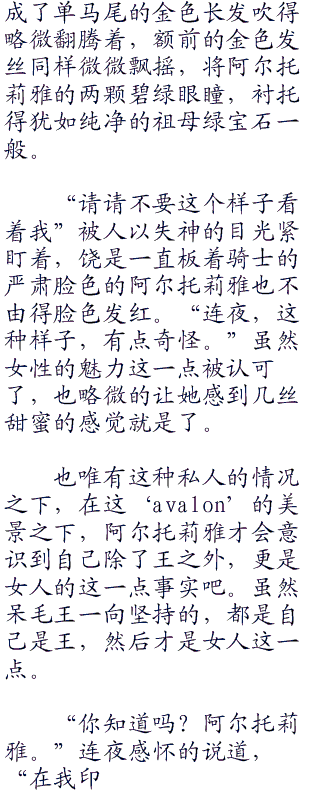 成了单马尾的金色长发吹得
略微翻腾着，额前的金色发
丝同样微微飘摇，将阿尔托
莉雅的两颗碧绿眼瞳，衬托
得犹如纯净的祖母绿宝石一
般。
“请请不要这个样子看
着我”被人以失神的目光紧
盯着，饶是一直板着骑士的
严肃脸色的阿尔托莉雅也不
由得脸色发红。“连夜，这
种样子，有点奇怪。”虽然
女性的魅力这一点被认可
了，也略微的让她感到几丝
甜蜜的感觉就是了。
也唯有这种私人的情况
之下，在这‘avalon’的美
景之下，阿尔托莉雅才会意
识到自己除了王之外，更是
女人的这一点事实吧。虽然
呆毛王一向坚持的，都是自
己是王，然后才是女人这一
点。
“你知道吗？阿尔托莉
雅。”连夜感怀的说道，
“在我印